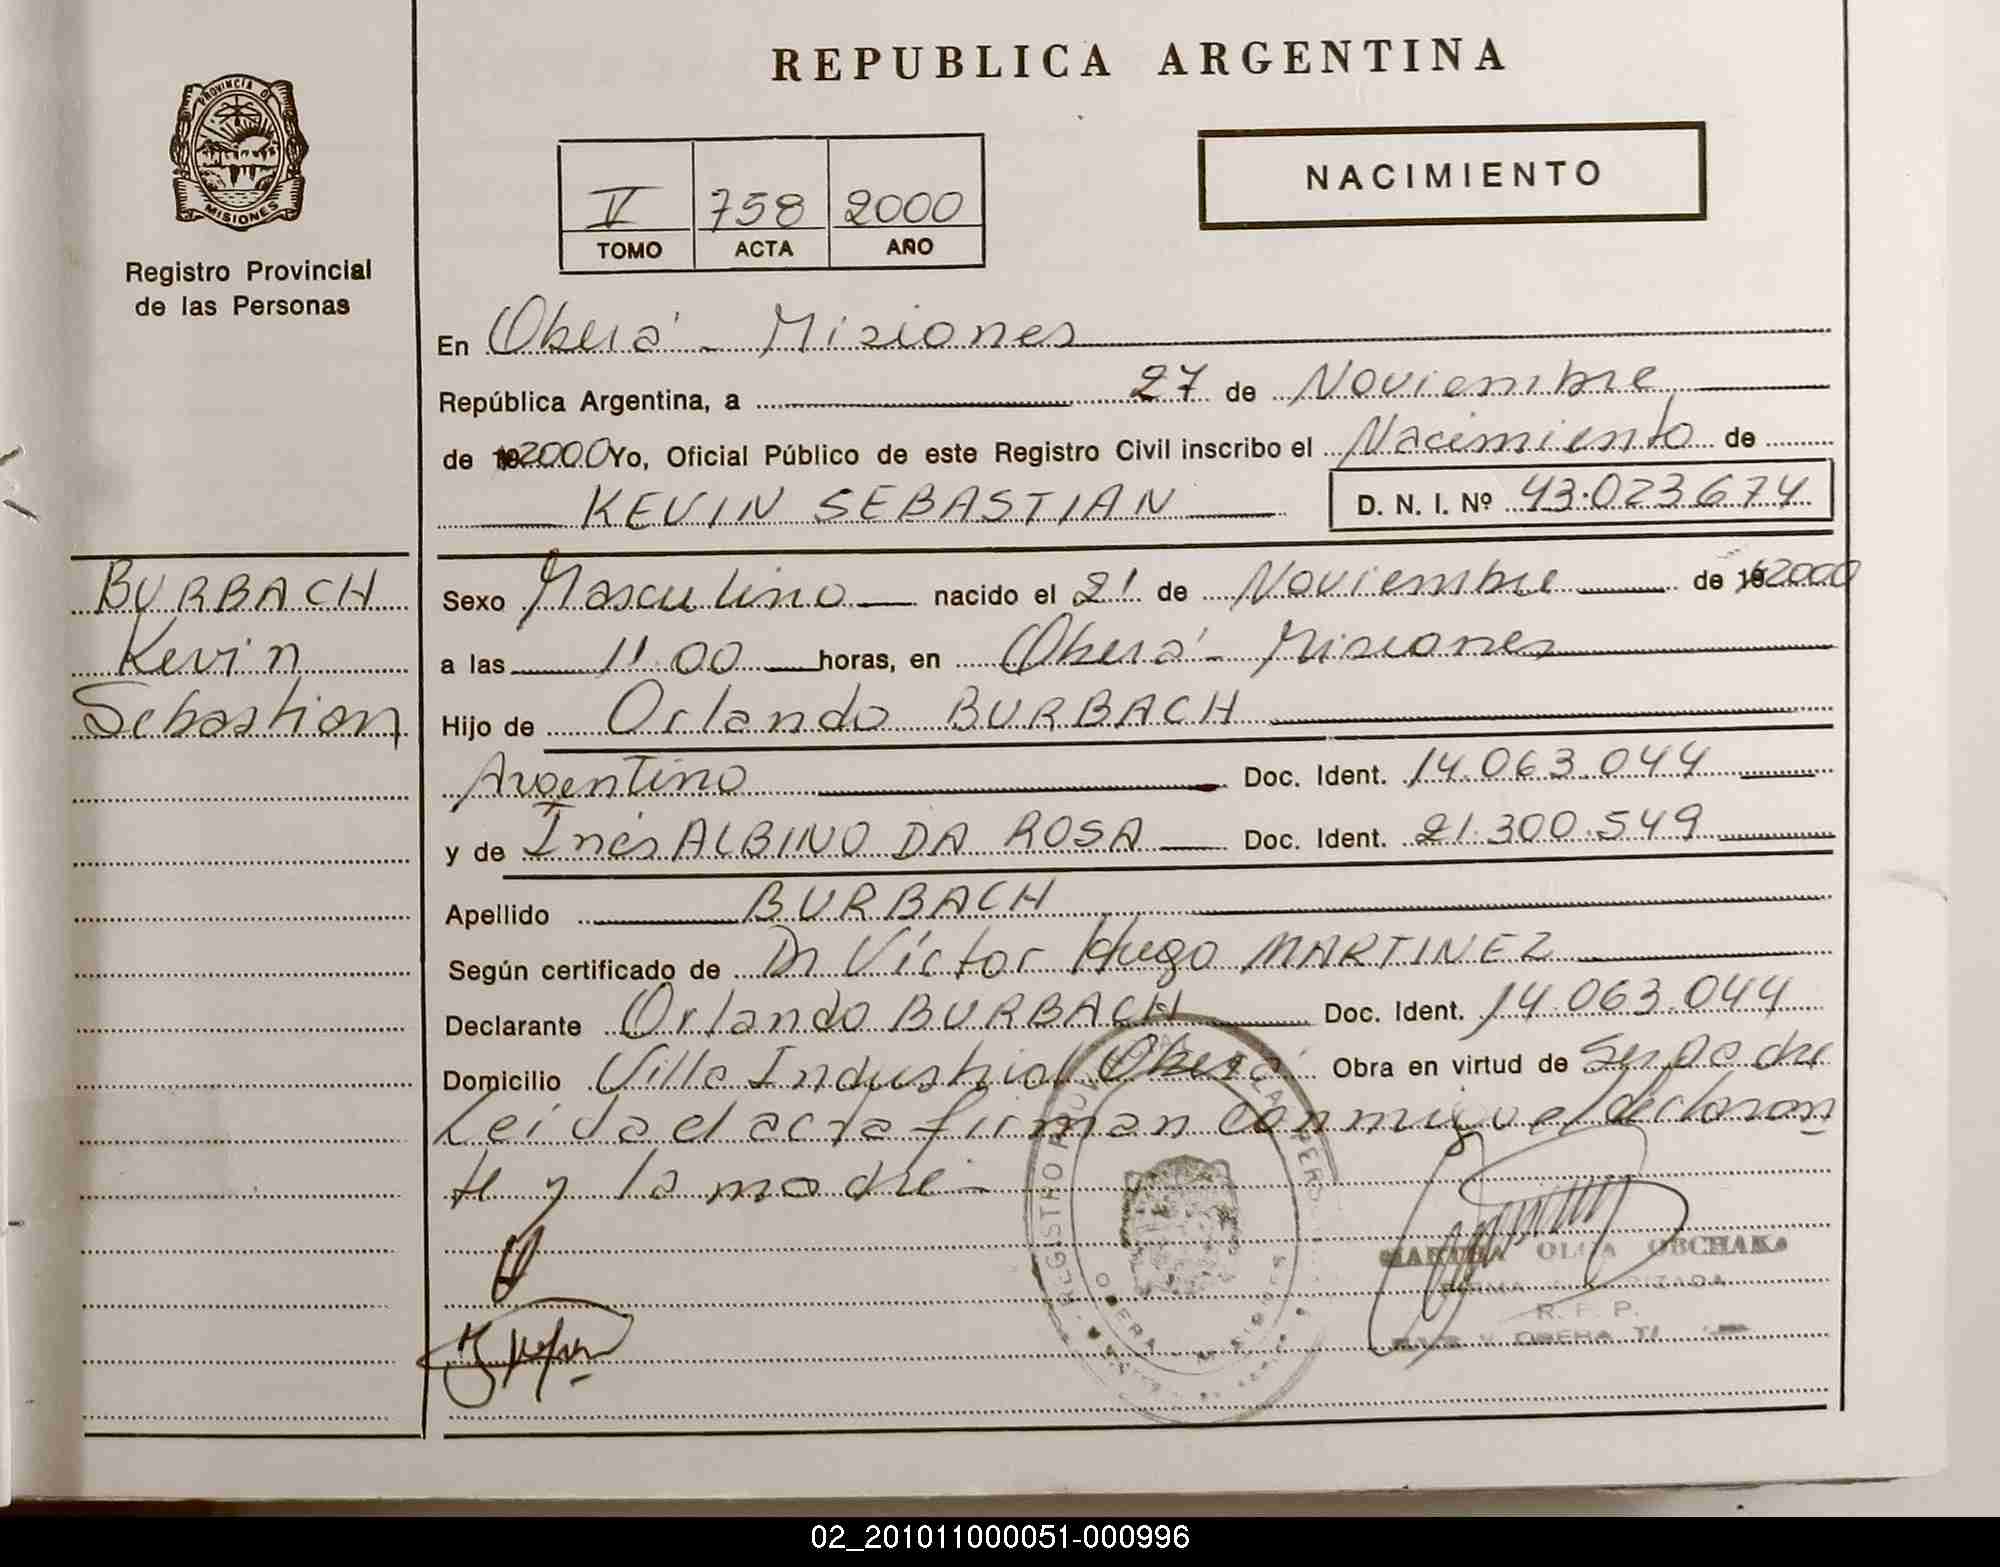 REPUBLICA ARGENTINA
PROVINCIA DE
MISIONES
Registro Provincial
de las Personas
NACIMIENTO
V 758 2000
TOMO ACTA AÑO
En Oberá - Misiones
República Argentina, a 27 de Noviembre
de 192000 Yo, Oficial Público de este Registro Civil inscribo el Nacimiento de
KEVIN SEBASTIAN D. N. I. Nº 43.023674
BURBACH
Kevin
Sebastian
Sexo Masculino nacido el 21 de Noviembre de 192000
a las 11.00 horas, en Oberá - Misiones
Hijo de Orlando BURBACH
Argentino Doc. Ident. 14.063.044
y de Inés ALBINO DA ROSA Doc. Ident. 21.300.549
Apellido BURBACH
Según certificado de Dr Víctor Hugo MARTINEZ
Declarante Orlando BURBACH Doc. Ident. 14.063.044
Domicilio Villa Industrial Oberá Obra en virtud de Ser padre
Leída el acta firman conmigo el declaran
te y la madre-
REGISTRO
OBERA - MISIONES
MARTHA OLGA OBCHAK
FIRMA AUTORIZADA
R. P. P.
02_201011000051-000996